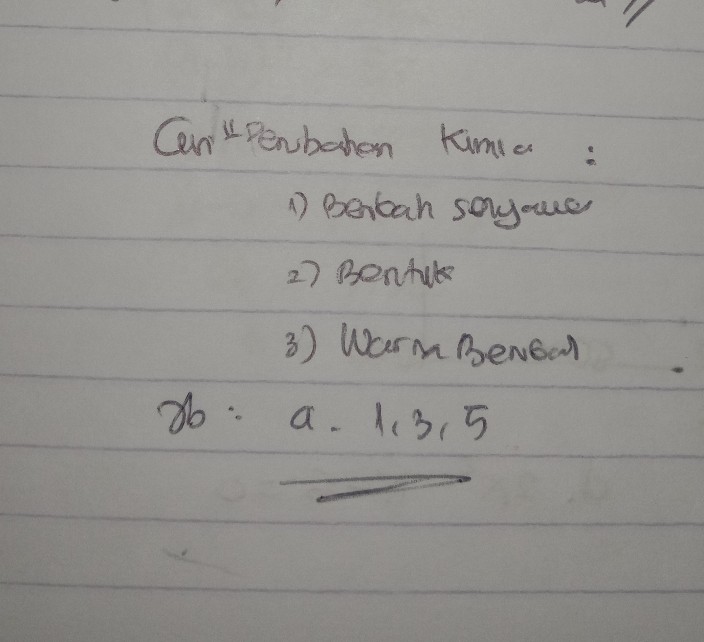 Ciri" Perubahan Kimia :
1) Berubah senyawa
2) Bentuk
3) Warna Berubah
Jb : a. 1, 3, 5